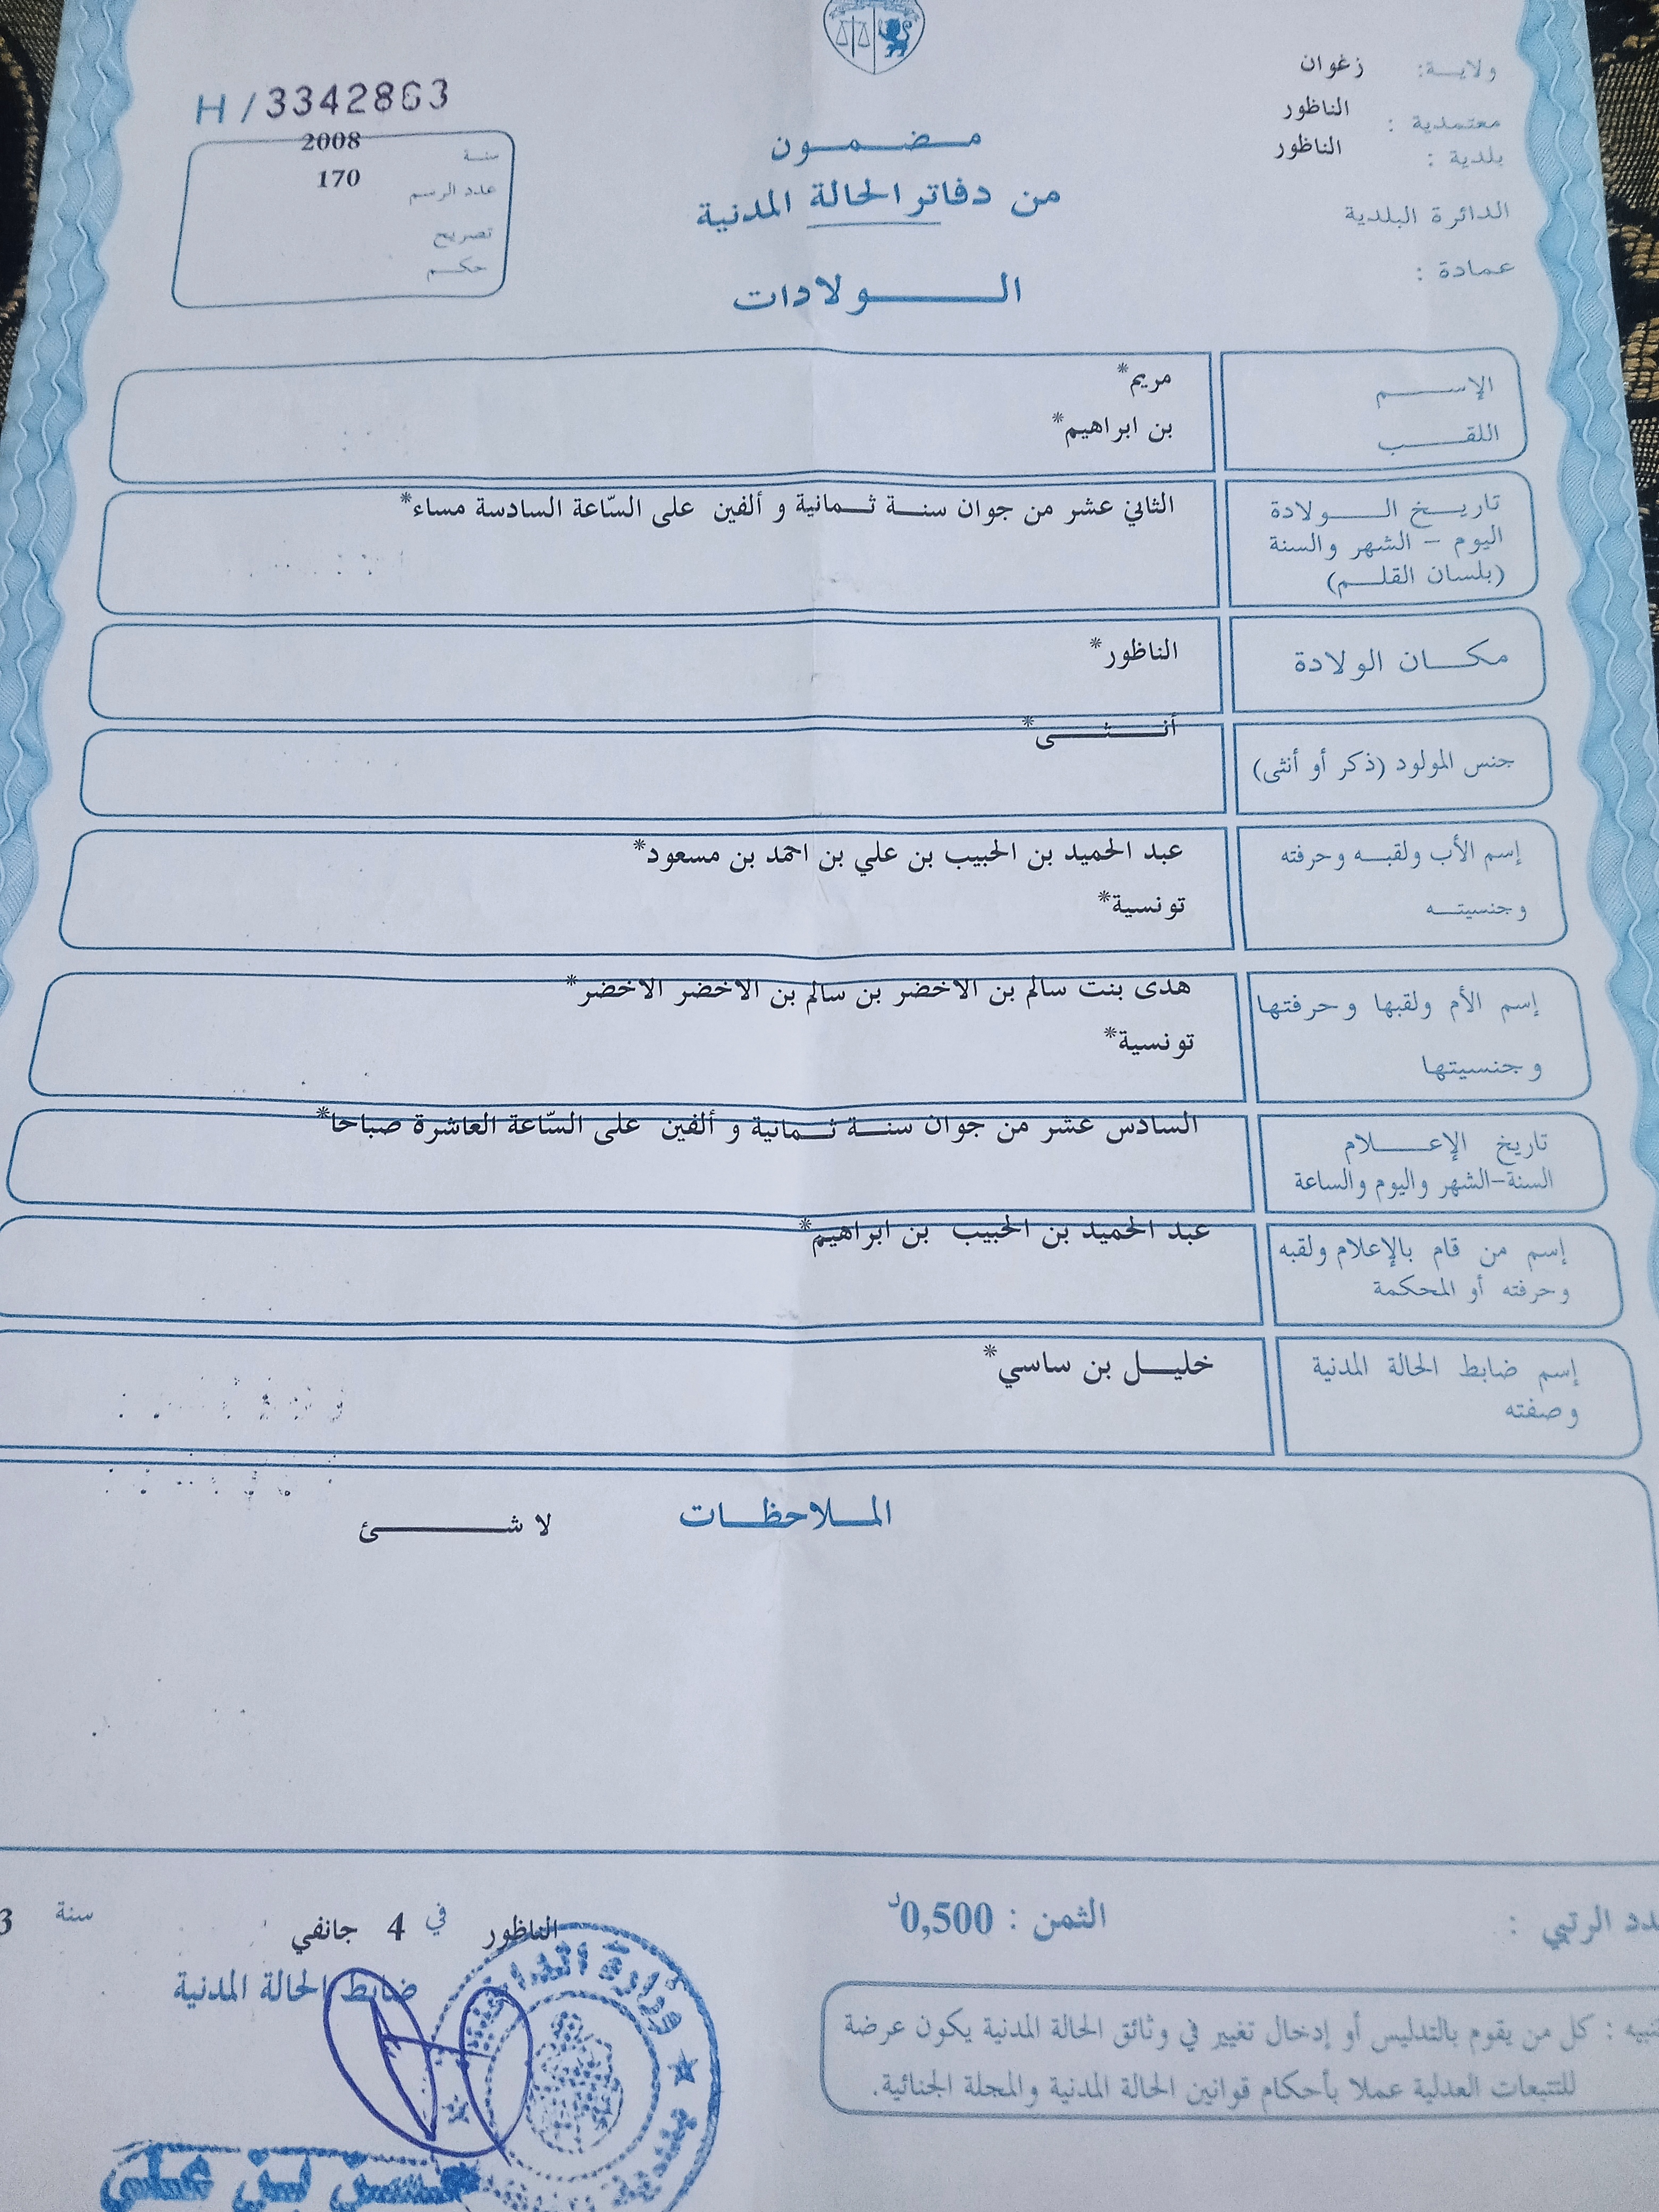 ولاية: زغوان
معتمدية : الناظور
بلدية : الناظور
الدائرة البلدية
عمادة :
مضمون
من دفاتر الحالة المدنية
الولادات
H / 3342863
سنة 2008
عدد الرسم 170
تصريح
حكم
الإسم مريم*
اللقب بن ابراهيم*
تاريخ الولادة الثاني عشر من جوان سنة ثمانية و ألفين على السّاعة السادسة مساء*
اليوم - الشهر والسنة
(بلسان القلم)
مكان الولادة الناظور*
جنس المولود (ذكر أو أنثى) أنثى*
إسم الأب ولقبه وحرفته عبد الحميد بن الحبيب بن علي بن احمد بن مسعود*
وجنسيته تونسية*
إسم الأم ولقبها وحرفتها هدى بنت سالم بن الاخضر بن سالم بن الاخضر الاخضر*
وجنسيتها تونسية*
تاريخ الإعلام السادس عشر من جوان سنة ثمانية و ألفين على السّاعة العاشرة صباحا*
السنة-الشهر واليوم والساعة
إسم من قام بالإعلام ولقبه عبد الحميد بن الحبيب بن ابراهيم*
وحرفته أو المحكمة
إسم ضابط الحالة المدنية خليل بن ساسي*
وصفته
الملاحظات لا شئ
الرتبي : الثمن : 0,500د
الناظور في 4 جانفي سنة 3
ضابط الحالة المدنية
كل من يقوم بالتدليس أو إدخال تغيير في وثائق الحالة المدنية يكون عرضة
للتتبعات العدلية عملا بأحكام قوانين الحالة المدنية والمجلة الجنائية.
وزارة الداخلية